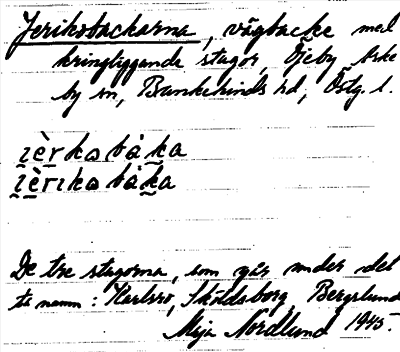 Jerikobackarna, vägbacke med
kringliggande stugor, Öjeby, Örke
by sn, Bankekinds hd, Östg. l.
ịèrkabàka
ịèrikabàka
De tre stugorna, som går under det
ta namn: Karlsro, Sköldsborg, Bergslund
Maja Nordlund 1945.